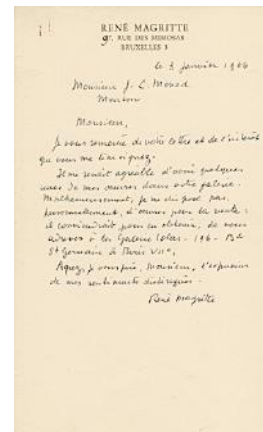 RENÉ MAGRITTE
97, RUE DES MIMOSAS
BRUXELLES 3
le 3 janvier 1966
Monsieur J. C.
Monsieur,
Je vous remercie de votre lettre et de l'intérêt
que vous me témoignez.
Il me serait agréable d'avoir quelques
unes de mes œuvres dans votre galerie.
Malheureusement, je ne dispose pas,
personnellement, d'œuvres pour la vente :
il conviendrait pour en obtenir, de vous
adresser à la Galerie Iolas - 196 - Bd
St Germain à Paris VIIe.
Agréez, je vous prie, Monsieur, l'expression
de mes sentiments distingués.
René Magritte